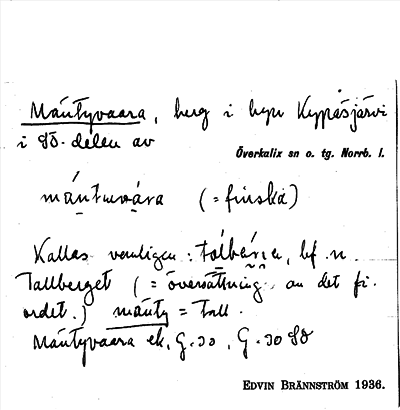 Mäntyvaara, berg i byn Kypäsjärvi
i SÖ. delen av
Överkalix sn o. tg. Norrb. l.
(= finska)
Kallas vanligen: bf. n.
Tallberget (= översättning av det fi.
ordet.) mänty = tall.
Mäntyvaara ek. G.30, G.30 SO
EDVIN BRÄNNSTRÖM 1936.